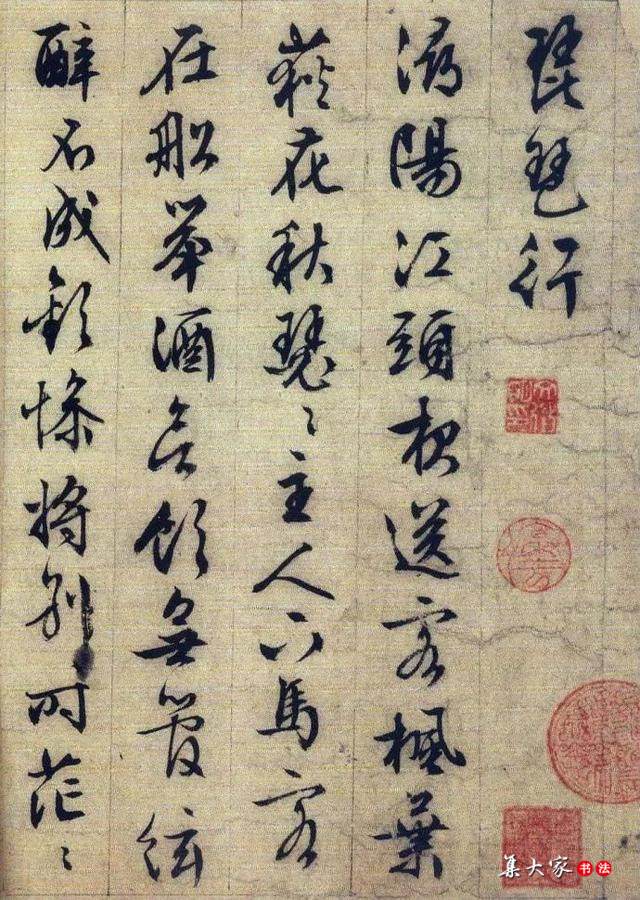 琵琶行
潯陽江頭夜送客楓葉
荻花秋瑟〻主人下馬客
在船舉酒欲飲無管絃
醉不成歡慘將別時茫〻
集大家书法